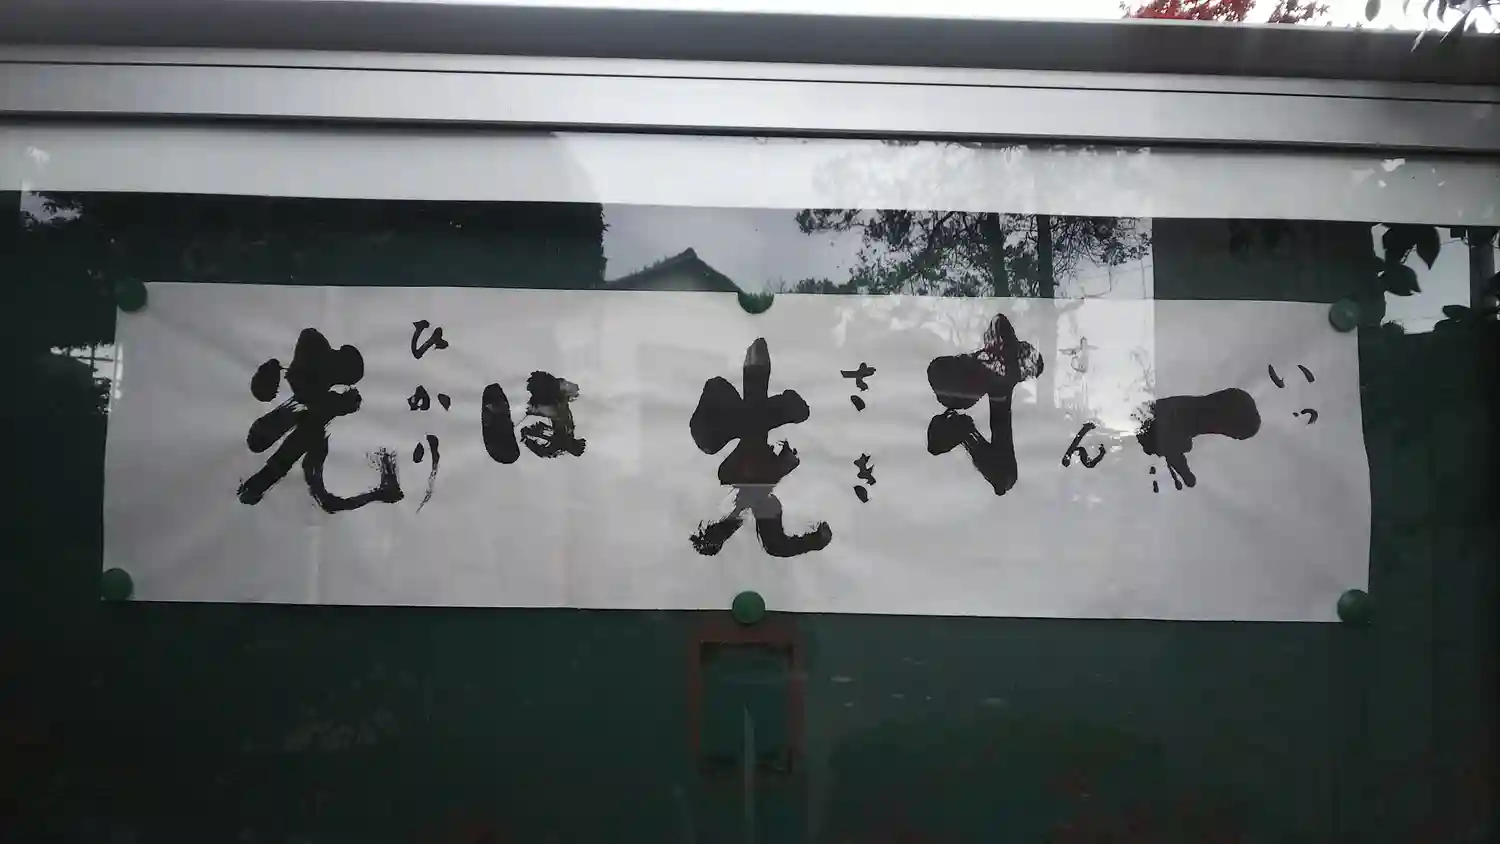 一寸先は光
いっ
すん
さき
ひかり